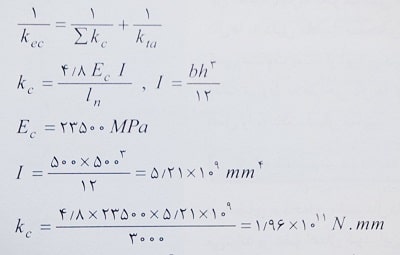 ۱/k_ec = ۱/∑k_c + ۱/k_ta
k_c = ۴/۸ E_c I / l_n , I = bh^۳/۱۲
E_c = ۲۳۵۰۰ MPa
I = ۵۰۰×۵۰۰^۳/۱۲ = ۵/۲۱×۱۰^۹ mm^۴
k_c = ۴/۸×۲۳۵۰۰×۵/۲۱×۱۰^۹ / ۳۰۰۰ = ۱/۹۶×۱۰^۱۱ N.mm